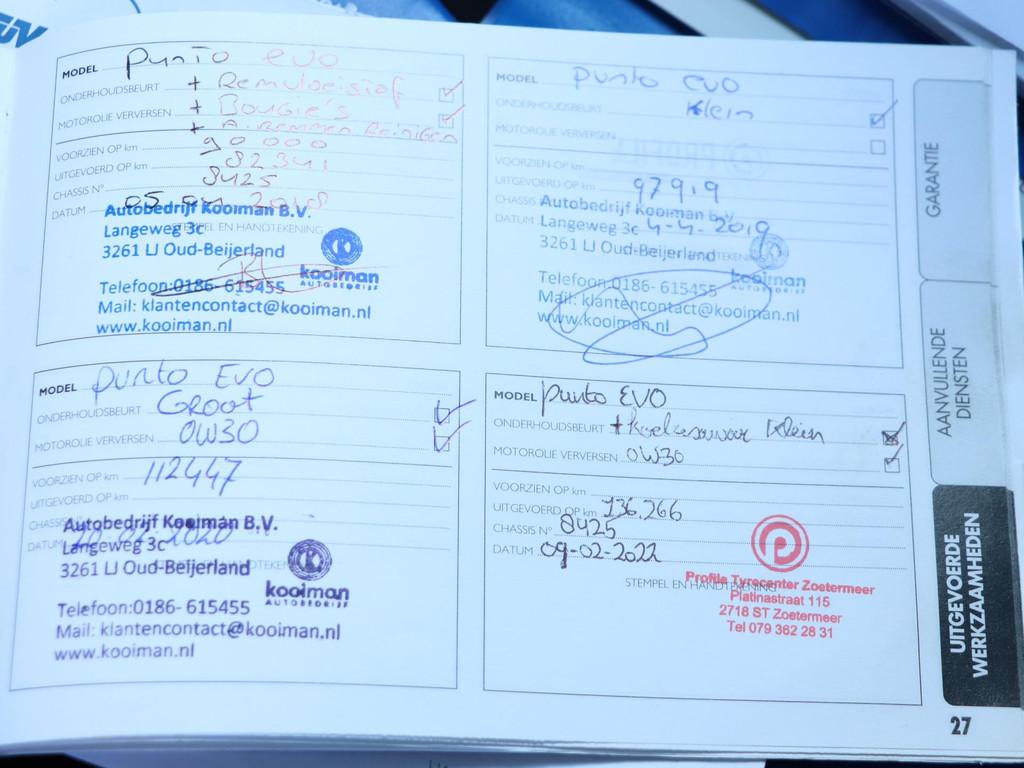 MODEL Punto evo
ONDERHOUDSBEURT + Remvloeistof
MOTOROLIE VERVERSEN + Bougie's
+ A. Remmen Reinigen
VOORZIEN OP km 90000
UITGEVOERD OP km 82341
CHASSIS N° 8425
DATUM 05 2018
Autobedrijf Kooiman B.V.
STEMPEL EN HANDTEKENING
Langeweg 3c
3261 LJ Oud-Beijerland
kooiman
AUTOBEDRIJF
Telefoon:0186- 615455
Mail: klantencontact@kooiman.nl
www.kooiman.nl
MODEL Punto evo
ONDERHOUDSBEURT Klein
MOTOROLIE VERVERSEN
VOORZIEN OP km
UITGEVOERD OP km 97919
CHASSIS
DATUM 4-4-2019
Autobedrijf Kooiman b.v.
Langeweg 3c
3261 LJ Oud-Beijerland
kooiman
AUTOBEDRIJF
Telefoon:0186- 615455
Mail: klantencontact@kooiman.nl
www.kooiman.nl
MODEL Punto EVO
ONDERHOUDSBEURT GROOT
MOTOROLIE VERVERSEN 0W30
VOORZIEN OP km 112447
UITGEVOERD OP km
CHASSIS
DATUM 20-02-2020
Autobedrijf Kooiman B.V.
Langeweg 3c
3261 LJ Oud-Beijerland
kooiman
AUTOBEDRIJF
Telefoon:0186- 615455
Mail: klantencontact@kooiman.nl
www.kooiman.nl
MODEL Punto EVO
ONDERHOUDSBEURT + Klein
MOTOROLIE VERVERSEN 0W30
VOORZIEN OP km
UITGEVOERD OP km 136.266
CHASSIS N° 8425
DATUM 09-02-2022
STEMPEL EN HANDTEKENING
Profile Tyrecenter Zoetermeer
Platinastraat 115
2718 ST Zoetermeer
Tel 079 362 28 31
GARANTIE
AANVULLENDE
DIENSTEN
UITGEVOERDE
WERKZAAMHEDEN
27